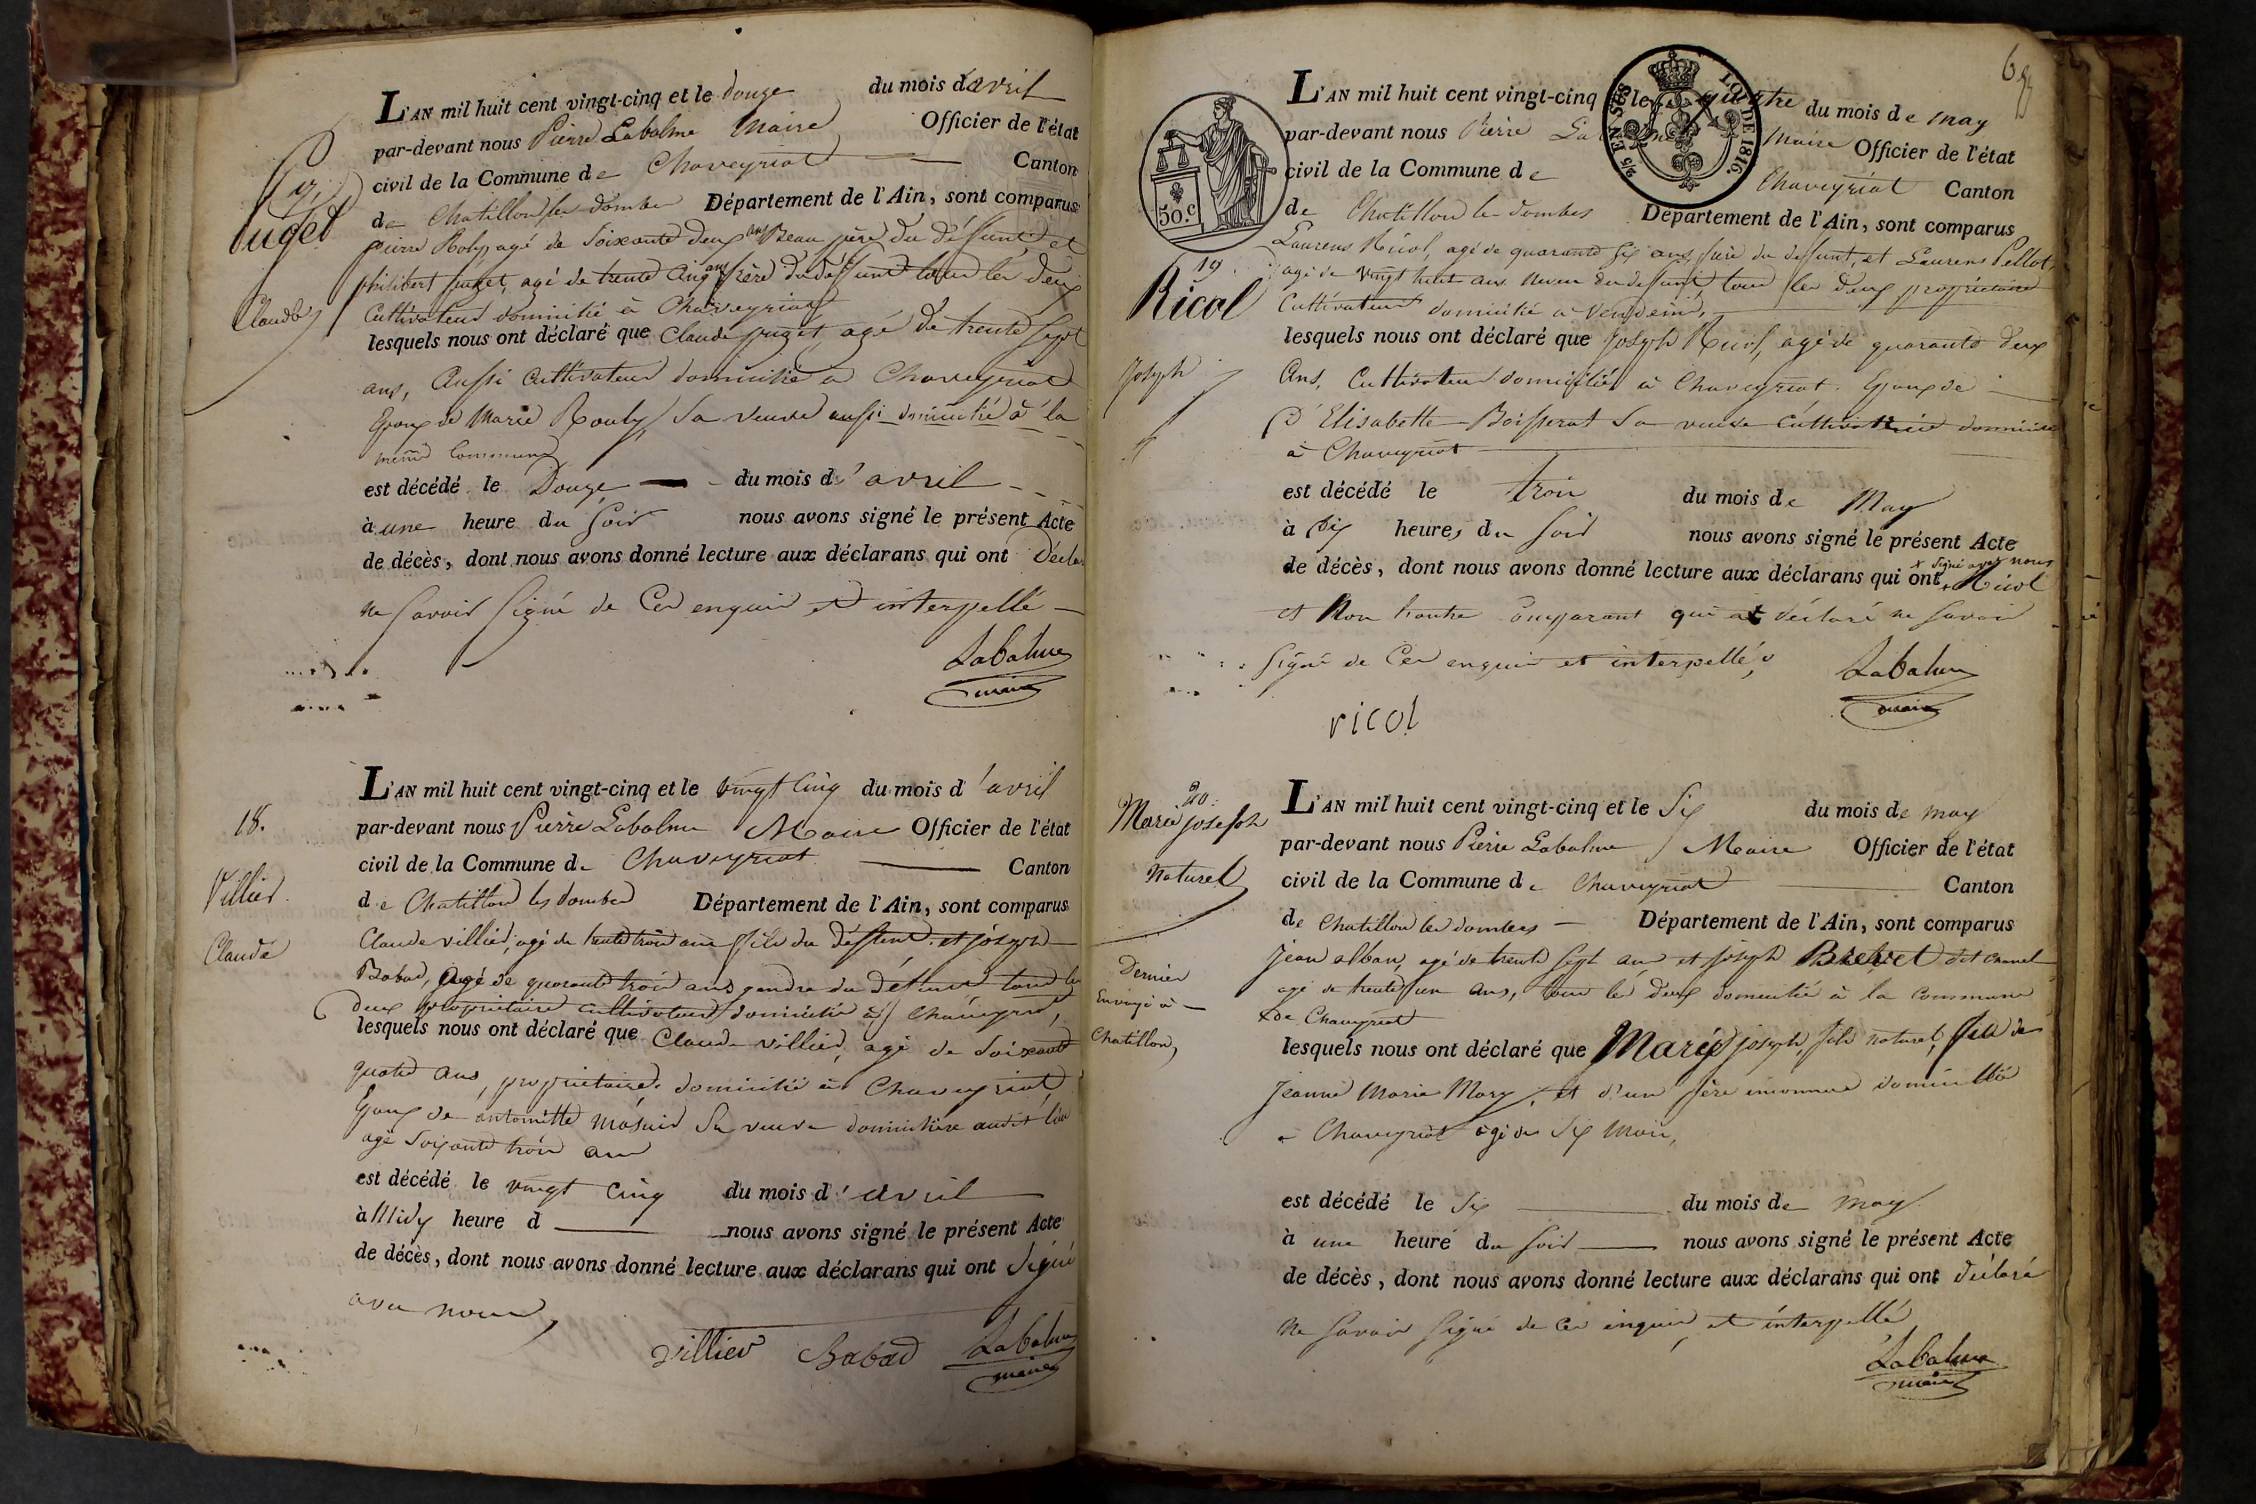 17.
Puget
Claude
L'AN mil huit cent vingt-cinq et le douze du mois d'avril
par-devant nous Pierre Labalme Maire Officier de l'état
civil de la Commune de Chaveyriat Canton
de Chatillon les dombes Département de l'Ain, sont comparus
pierre Roly agé de Soixante deux ans Beau père du défunt et
philibert puget, agé de trente cinq ans frère du défunt tous les deux
Cultivateurs domicilié à Chaveyriat
lesquels nous ont déclaré que Claude puget, agé de trente sept
ans, aussi cultivateur domicilié a Chaveyriat
Epoux de Marie Rouly sa veuve aussi domicilié à la
même Commune
est décédé le Douze du mois d'avril
à une heure du soir nous avons signé le présent Acte
de décès, dont nous avons donné lecture aux déclarans qui ont déclaré
ne savoir signé de ce enquis et interpellé
Labalme
maire
18.
Villier
Claude
L'AN mil huit cent vingt-cinq et le vingt cinq du mois d'avril
par-devant nous Pierre Labalme Maire Officier de l'état
civil de la Commune de Chaveyriat Canton
de Chatillon les dombes Département de l'Ain, sont comparus
Claude villier, agé de trente trois ans fils du défunt et joseph
Babad, agé de quarante trois ans gendre du défunt tous les
deux propriétaire cultivateurs domicilié à Chaveyriat,
lesquels nous ont déclaré que Claude villier, agé de soixante
quatre ans, propriétaire domicilié à Chaveyriat
Epoux de antoinette sa veuve domicilière audit lieu
agé soixante trois ans
est décédé le vingt cinq du mois d'avril
à Midy heure d nous avons signé le présent Acte
de décès, dont nous avons donné lecture aux déclarans qui ont signé
avec nous,
villier Babad Labalme
maire
68
50 c
LOI DE 1816.
2/5 EN SUS
19
Ricol
Joseph
L'AN mil huit cent vingt-cinq et le quatre du mois de may
par-devant nous Pierre Labalme Maire Officier de l'état
civil de la Commune de Chaveyriat Canton
de Chatillon les dombes Département de l'Ain, sont comparus
Laurens Ricol, agé de quarante six ans, frère du defunt, et Laurens Pellot,
agé de vingt huit ans neveu du defunt tous les deux propriétaire
Cultivateurs domicilié a Vandeins,
lesquels nous ont déclaré que Joseph Ricol, agé de quarante deux
Ans, Cultivateur domicilié à Chaveyriat. Epoux de
d'Elisabette Boisserat Sa veuve cultivatrice domiciliée
à Chaveyriat
est décédé le trois du mois de May
à dix heures du soir nous avons signé le présent Acte
de décès, dont nous avons donné lecture aux déclarans qui ont x signé avec nous Ricol
et Non l'autre comparant qui a déclaré ne savoir
Signé de ce enquis et interpellé,
Labalme
maire
ricol
20.
Marie joseph
Naturel
Dernier
Envoyé à
Chatillon,
L'AN mil huit cent vingt-cinq et le Six du mois de may
par-devant nous Pierre Labalme Maire Officier de l'état
civil de la Commune de Chaveyriat Canton
de Chatillon les dombes Département de l'Ain, sont comparus
Jean alban, agé de trente sept ans et joseph Brevet dit
agé de trente un ans, tous les deux domicilié à la commune
de Chaveyriat
lesquels nous ont déclaré que Marie joseph, fils naturel, de
Jeanne Marie Mary, et d'un père inconnu domicillié
à Chaveyriat agé de Six Mois,
est décédé le Six du mois de may
à une heure du soir nous avons signé le présent Acte
de décès, dont nous avons donné lecture aux déclarans qui ont déclaré
ne savoir signé de ce enquis et interpellé
Labalme
maire